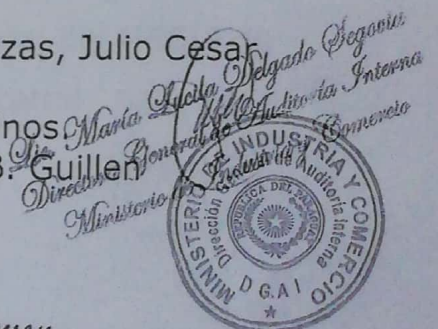 zas, Julio Cesar
nos.
B. Guillen
Lic. María Lucila Delgado Segovia
Directora General de Auditoría Interna
Ministerio de Industria y Comercio
MINISTERIO DE INDUSTRIA Y COMERCIO
Dirección General de Auditoría Interna
REPUBLICA DEL PARAGUAY
D G.A I